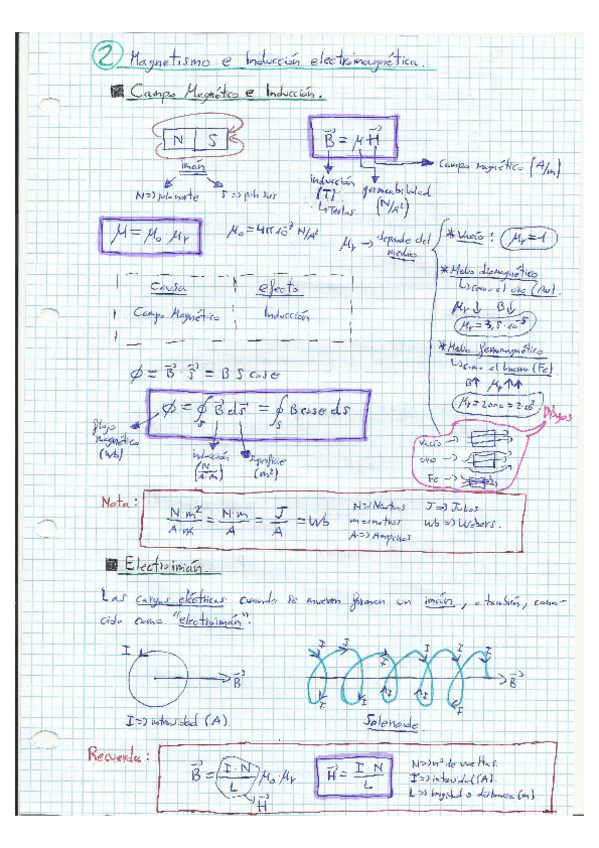 2 Magnetismo e Inducción electromagnética.
Campo Magnético e Inducción.
N S
imán
N => polo norte S => polo sur
B = μH
inducción (T) Teslas
permeabilidad (N/A²)
Campo magnético (A/m)
μ = μ₀ μr
μ₀ = 4π10⁻⁷ N/A²
μr → depende del medio
* Vacío: μr = 1
* Medio diamagnético
como el oro (Au).
μr↓ B↓
μr = 3,5·10⁻⁵
* Medio ferromagnético
como el hierro (Fe).
B↑ μr↑↑
Dibujos
Vacío →
oro →
Fe →
causa efecto
Campo Magnético Inducción
φ = B · S = B S cosθ
φ = ∮s B ds = ∮s B cosθ ds
flujo magnético (Wb)
inducción (N/A·m)
superficie (m²)
Nota:
N·m²/A·m = N·m/A = J/A = Wb
N => Newtons J => Julios
m => metros Wb => Webers.
A => Amperios
Electroimán.
Las cargas eléctricas cuando se mueven forman un imán, o también, cono-
cido como "electroimán".
I B
I => intensidad (A)
I I I I I I I I I B
Solenoide.
Recuerda:
B = I·N/L μ₀·μr
H
H = I·N/L
N => nº de vueltas.
I => intensidad (A).
L => longitud o distancia (m)